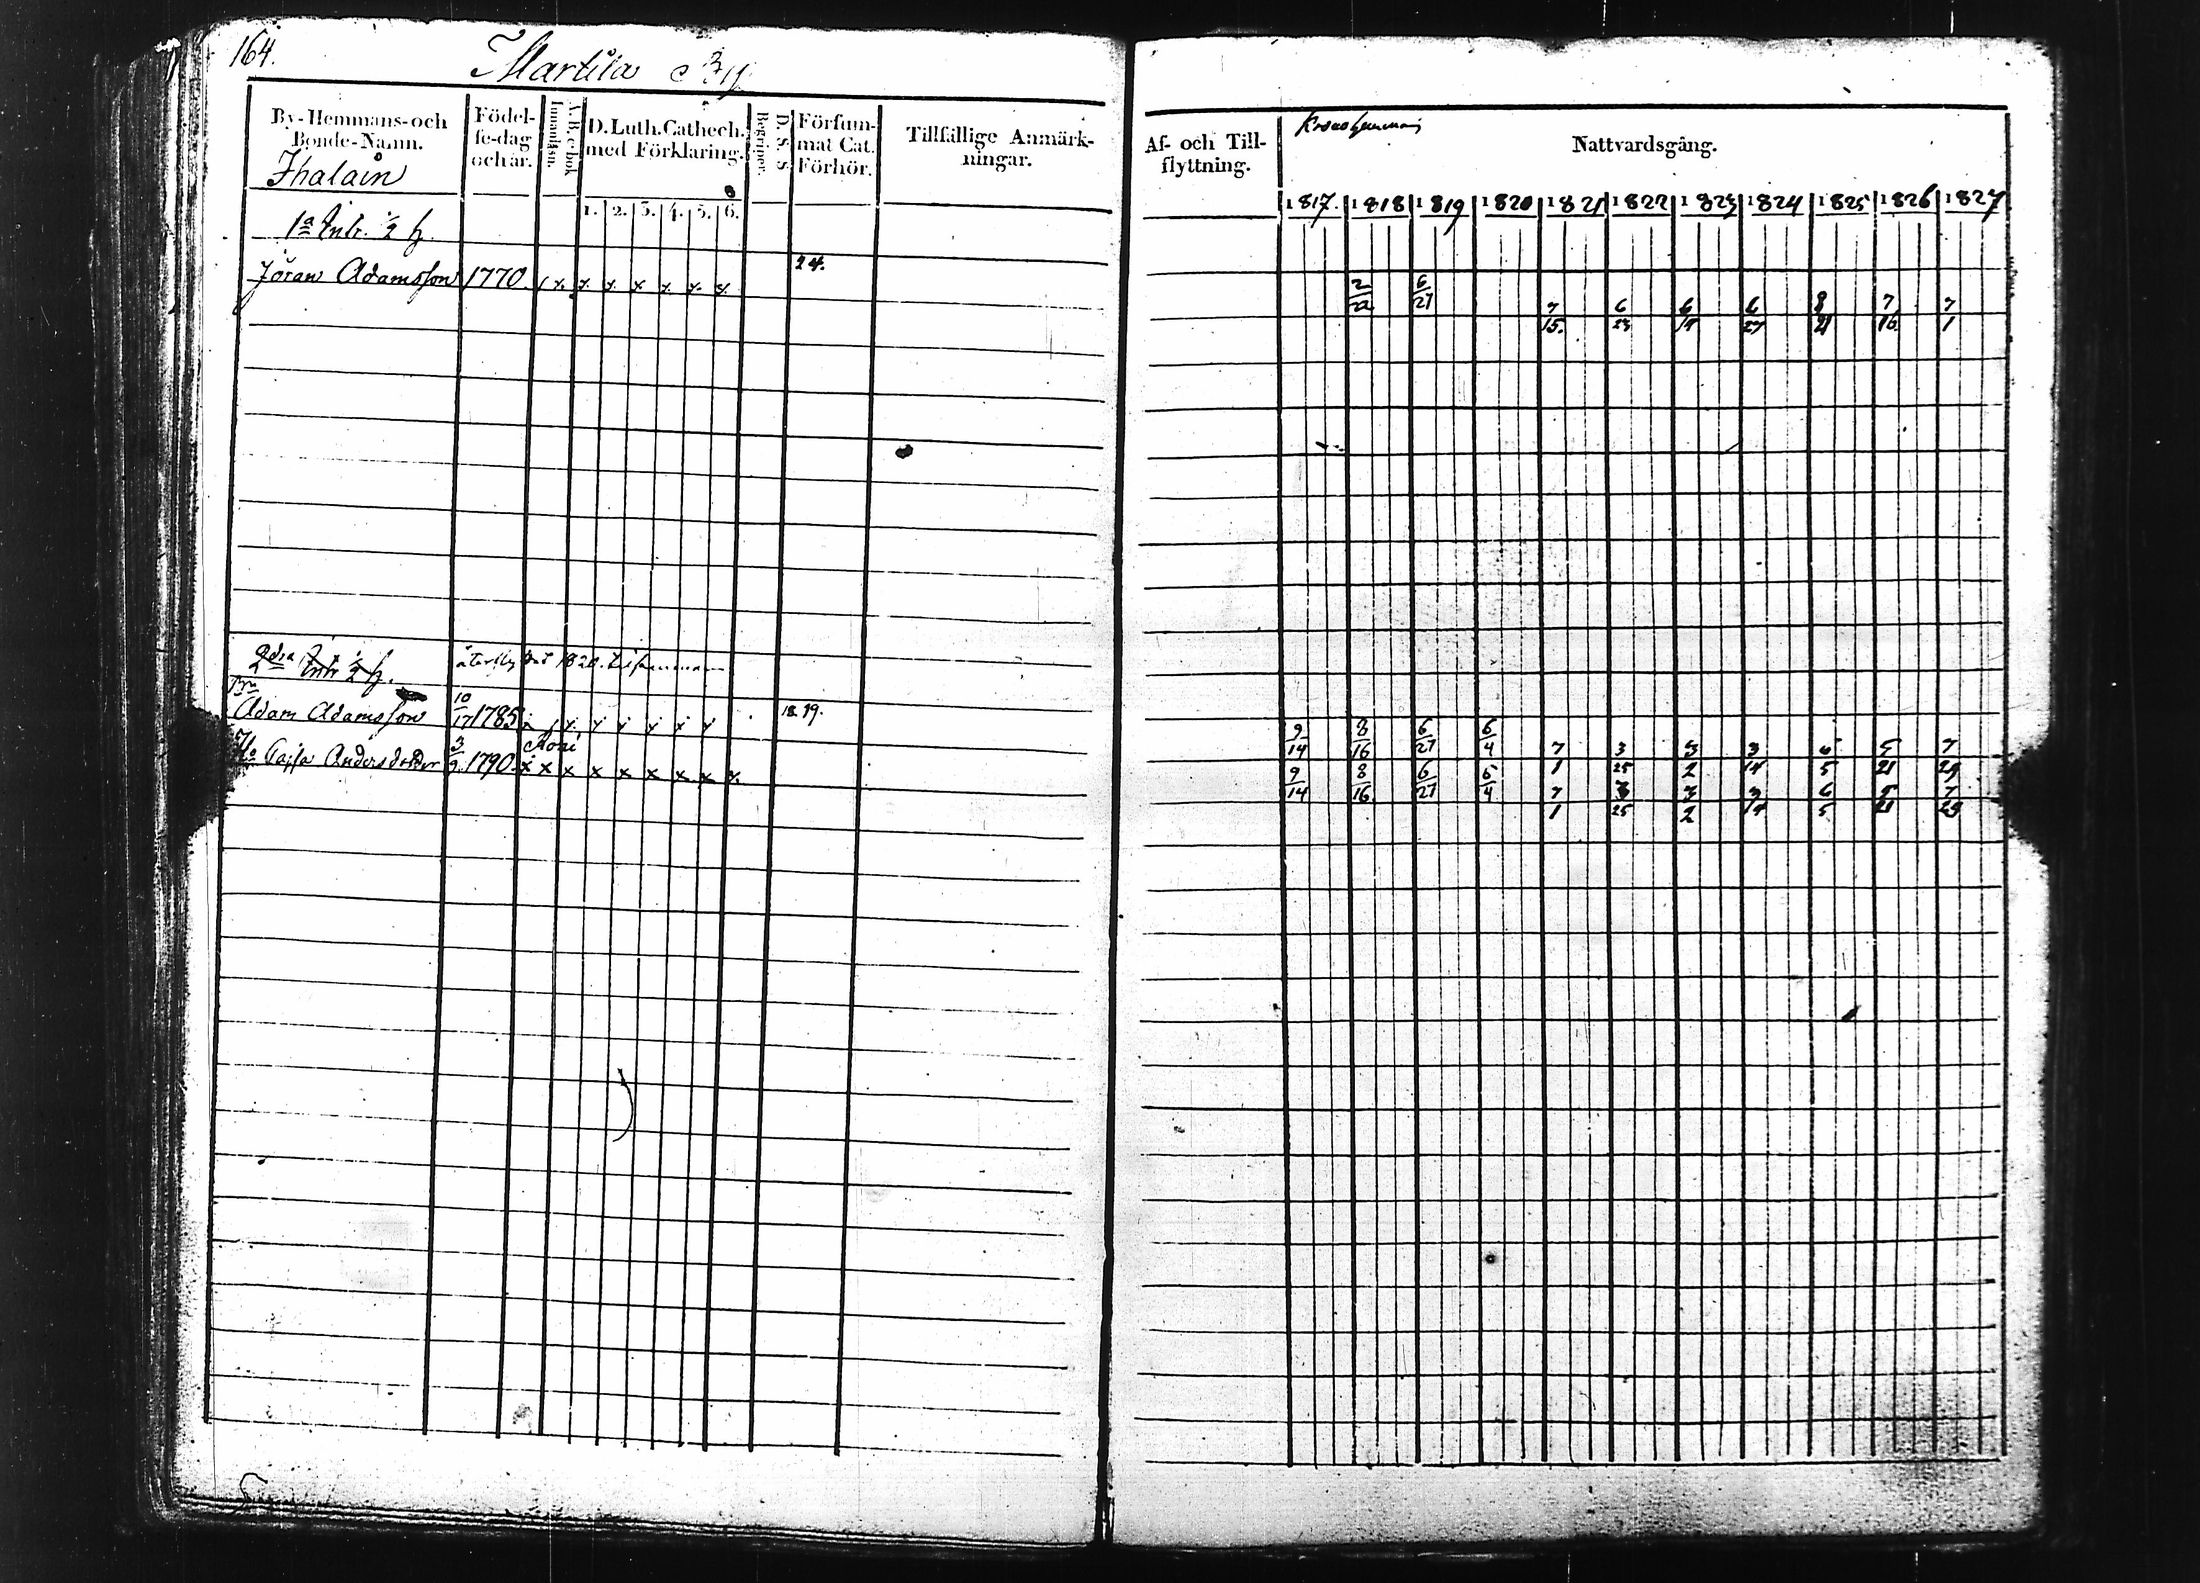 164.
Martila By
By-Hemmans-och Bonde-Namn.
Födel-se-dag och år.
A. B. c-bok Innanläsn.
D. Luth. Cathech. med Förklaring.
Begriper. D. S. S
Försum-mat Cat. Förhör.
Tillfällige Anmärk-ningar.
Ihalain
1. 2. 3. 4. 5. 6.
1a Intr. ½ h.
24.
Jöran Adamsson 1770. x x x x x x x
2dra Intr ½ h. 1820.
Bn
Adam Adamsson 10/17 1785 18 19.
H:o Cajsa Andersdotter 3/9 1790. x x x x x x x x x
Af- och Till-flyttning.
Nattvardsgång.
1817. 1818 1819 1820 1821 1822 1823 1824 1825 1826 1827
2/22 6/27 7/15. 6/23 6/15 6/27 8/21 7/16 7/1
9/14 8/16 6/27 6/4 7/1 3/25 3/2 3/14 6/5 5/21 7/29
9/14 8/16 6/27 6/4 7/1 3/25 3/2 3/14 6/5 5/21 7/29